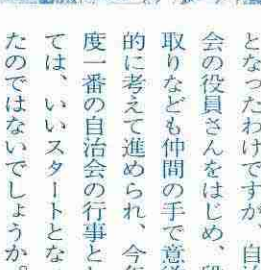 となったわけですが、自
会の役員さんをはじめ、
取りなども仲間の手で意
的に考えて進められ、今
度一番の自治会の行事と
ては、いいスタートとな
たのではないでしょうか。